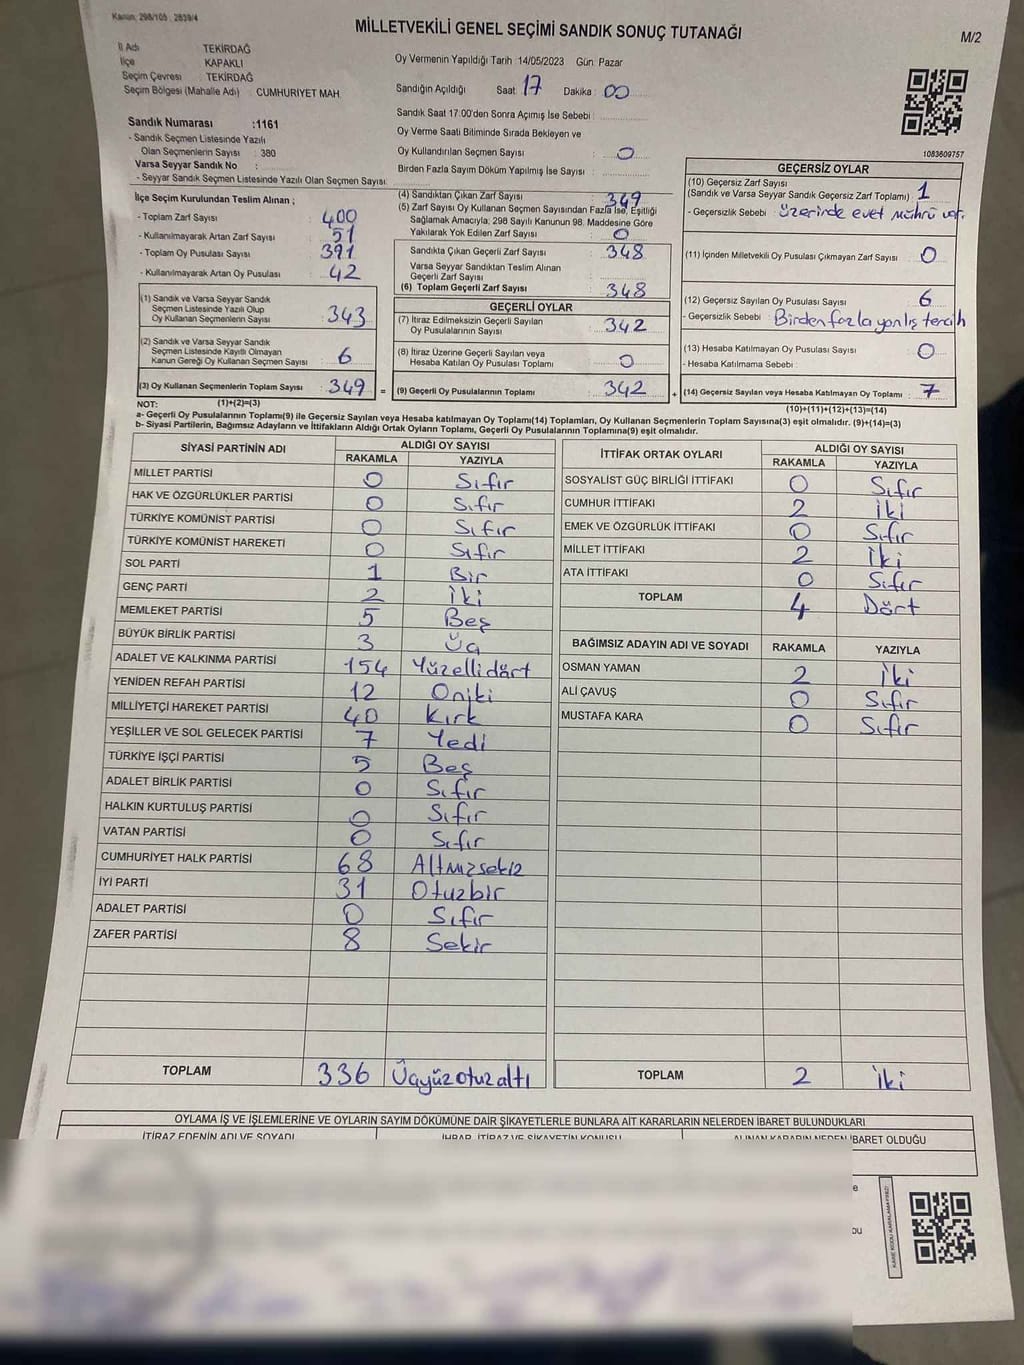 Kanun: 298/105 , 2839/4
MİLLETVEKİLİ GENEL SEÇİMİ SANDIK SONUÇ TUTANAĞI
M/2
İl Adı TEKİRDAĞ
İlçe KAPAKLI
Seçim Çevresi : TEKİRDAĞ
Seçim Bölgesi (Mahalle Adı) : CUMHURİYET MAH.
Oy Vermenin Yapıldığı Tarih : 14/05/2023 Gün: Pazar
Sandığın Açıldığı Saat : 17 Dakika : 00
Sandık Saat 17:00'den Sonra Açımış İse Sebebi :
Oy Verme Saati Bitiminde Sırada Bekleyen ve
Oy Kullandırılan Seçmen Sayısı : 0
Birden Fazla Sayım Döküm Yapılmış İse Sayısı :
Sandık Numarası :1161
- Sandık Seçmen Listesinde Yazılı
Olan Seçmenlerin Sayısı : 380
Varsa Seyyar Sandık No :
- Seyyar Sandık Seçmen Listesinde Yazılı Olan Seçmen Sayısı:
1083609757
İlçe Seçim Kurulundan Teslim Alınan ;
- Toplam Zarf Sayısı : 400
- Kullanılmayarak Artan Zarf Sayısı : 51
- Toplam Oy Pusulası Sayısı : 391
- Kullanılmayarak Artan Oy Pusulası : 42
(1) Sandık ve Varsa Seyyar Sandık
Seçmen Listesinde Yazılı Olup
Oy Kullanan Seçmenlerin Sayısı : 343
(2) Sandık ve Varsa Seyyar Sandık
Seçmen Listesinde Kayıtlı Olmayan
Kanun Gereği Oy Kullanan Seçmen Sayısı : 6
(3) Oy Kullanan Seçmenlerin Toplam Sayısı : 349 =
(1)+(2)=(3)
(4) Sandıktan Çıkan Zarf Sayısı : 349
(5) Zarf Sayısı Oy Kullanan Seçmen Sayısından Fazla İse, Eşitliği
Sağlamak Amacıyla; 298 Sayılı Kanunun 98. Maddesine Göre
Yakılarak Yok Edilen Zarf Sayısı : 0
Sandıkta Çıkan Geçerli Zarf Sayısı : 348
Varsa Seyyar Sandıktan Teslim Alınan
Geçerli Zarf Sayısı :
(6) Toplam Geçerli Zarf Sayısı : 348
GEÇERLİ OYLAR
(7) İtiraz Edilmeksizin Geçerli Sayılan
Oy Pusulalarının Sayısı : 342
(8) İtiraz Üzerine Geçerli Sayılan veya
Hesaba Katılan Oy Pusulası Toplamı : 0
(9) Geçerli Oy Pusulalarının Toplamı : 342 +
GEÇERSİZ OYLAR
(10) Geçersiz Zarf Sayısı
(Sandık ve Varsa Seyyar Sandık Geçersiz Zarf Toplamı) : 1
- Geçersizlik Sebebi : Üzerinde evet mührü var.
(11) İçinden Milletvekili Oy Pusulası Çıkmayan Zarf Sayısı : 0
(12) Geçersiz Sayılan Oy Pusulası Sayısı : 6
- Geçersizlik Sebebi : Birden fazla yanlış tercih
(13) Hesaba Katılmayan Oy Pusulası Sayısı : 0
- Hesaba Katılmama Sebebi :
(14) Geçersiz Sayılan veya Hesaba Katılmayan Oy Toplamı : 7
(10)+(11)+(12)+(13)=(14)
NOT:
a- Geçerli Oy Pusulalarının Toplamı(9) ile Geçersiz Sayılan veya Hesaba katılmayan Oy Toplamı(14) Toplamları, Oy Kullanan Seçmenlerin Toplam Sayısına(3) eşit olmalıdır. (9)+(14)=(3)
b- Siyasi Partilerin, Bağımsız Adayların ve İttifakların Aldığı Ortak Oyların Toplamı, Geçerli Oy Pusulalarının Toplamına(9) eşit olmalıdır.
SİYASİ PARTİNİN ADI ALDIĞI OY SAYISI
RAKAMLA YAZIYLA
MİLLET PARTİSİ 0 Sıfır
HAK VE ÖZGÜRLÜKLER PARTİSİ 0 Sıfır
TÜRKİYE KOMÜNİST PARTİSİ 0 Sıfır
TÜRKİYE KOMÜNİST HAREKETİ 0 Sıfır
SOL PARTİ 1 Bir
GENÇ PARTİ 2 İki
MEMLEKET PARTİSİ 5 Beş
BÜYÜK BİRLİK PARTİSİ 3 Üç
ADALET VE KALKINMA PARTİSİ 154 Yüzellidört
YENİDEN REFAH PARTİSİ 12 Oniki
MİLLİYETÇİ HAREKET PARTİSİ 40 Kırk
YEŞİLLER VE SOL GELECEK PARTİSİ 7 Yedi
TÜRKİYE İŞÇİ PARTİSİ 5 Beş
ADALET BİRLİK PARTİSİ 0 Sıfır
HALKIN KURTULUŞ PARTİSİ 0 Sıfır
VATAN PARTİSİ 0 Sıfır
CUMHURİYET HALK PARTİSİ 68 Altmışsekiz
İYİ PARTİ 31 Otuzbir
ADALET PARTİSİ 0 Sıfır
ZAFER PARTİSİ 8 Sekiz
TOPLAM 336 Üçyüzotuzaltı
İTTİFAK ORTAK OYLARI ALDIĞI OY SAYISI
RAKAMLA YAZIYLA
SOSYALİST GÜÇ BİRLİĞİ İTTİFAKI 0 Sıfır
CUMHUR İTTİFAKI 2 İki
EMEK VE ÖZGÜRLÜK İTTİFAKI 0 Sıfır
MİLLET İTTİFAKI 2 İki
ATA İTTİFAKI 0 Sıfır
TOPLAM 4 Dört
BAĞIMSIZ ADAYIN ADI VE SOYADI RAKAMLA YAZIYLA
OSMAN YAMAN 2 İki
ALİ ÇAVUŞ 0 Sıfır
MUSTAFA KARA 0 Sıfır
TOPLAM 2 İki
OYLAMA İŞ VE İŞLEMLERİNE VE OYLARIN SAYIM DÖKÜMÜNE DAİR ŞİKAYETLERLE BUNLARA AİT KARARLARIN NELERDEN İBARET BULUNDUKLARI
İTİRAZ EDENİN ADI VE SOYADI İHBAR, İTİRAZ VE ŞİKAYETİN KONUSU ALINAN KARARIN NEDEN İBARET OLDUĞU